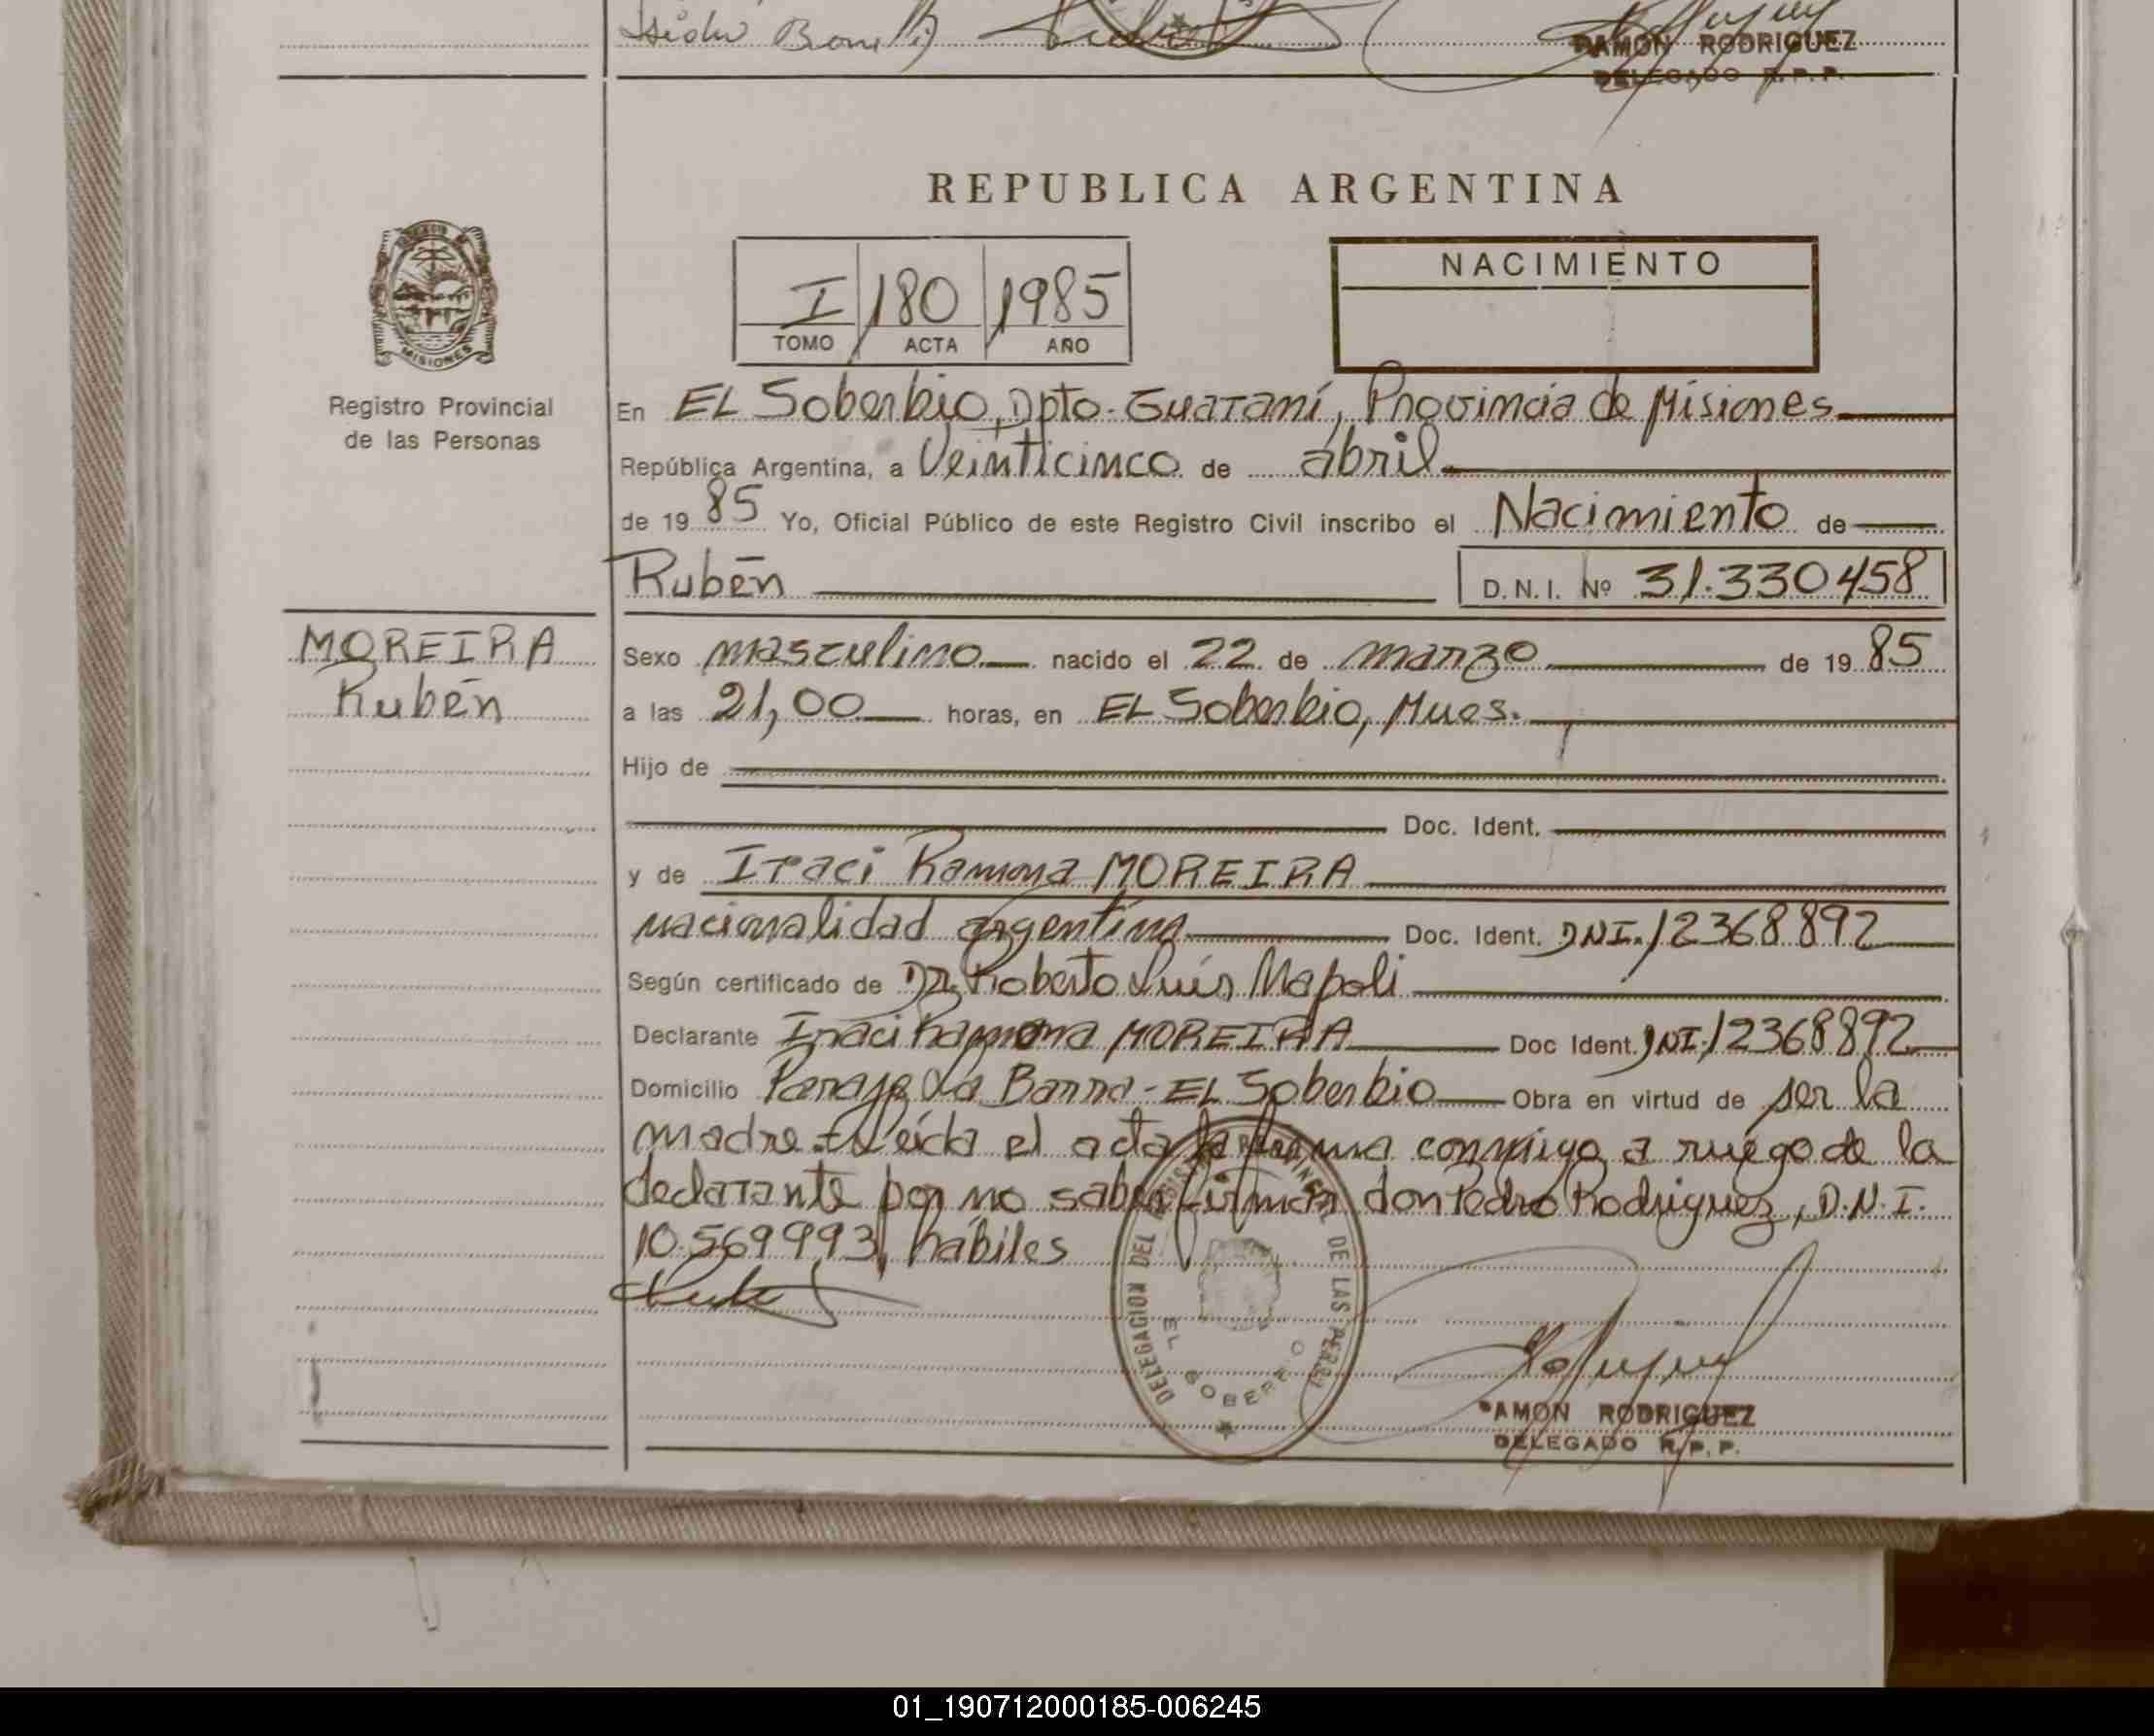 Isidro
RAMON RODRIGUEZ
DELEGADO R. P. P.
REPUBLICA ARGENTINA
NACIMIENTO
I 180 1985
TOMO ACTA AÑO
MISIONES
Registro Provincial
de las Personas
En EL Soberbio, Dpto. Guaraní, Provincia de Misiones
República Argentina, a Veinticinco de abril
de 1985 Yo, Oficial Público de este Registro Civil inscribo el Nacimiento de
Rubén D. N. I. Nº 31.330458
MOREIRA
Rubén
Sexo masculino nacido el 22 de marzo de 1985
a las 21,00 horas, en EL Soberbio, Mnes.
Hijo de
Doc. Ident.
y de Iraci Ramona MOREIRA
nacionalidad argentina Doc. Ident. DNI. 12368892
Según certificado de Dr. Roberto Luis Napoli
Declarante Iraci Ramona MOREIRA Doc Ident. DNI. 12368892
Domicilio Paraje La Barra - EL Soberbio Obra en virtud de ser la
madre. Leída el acta la firma conmigo a ruego de la
declarante por no saber firmar don Pedro Rodriguez, D.N.I.
10.569993, hábiles
DELEGACION DEL REGISTRO PROVINCIAL DE LAS PERS.
EL SOBERBIO
RAMON RODRIGUEZ
DELEGADO R. P. P.
01_190712000185-006245